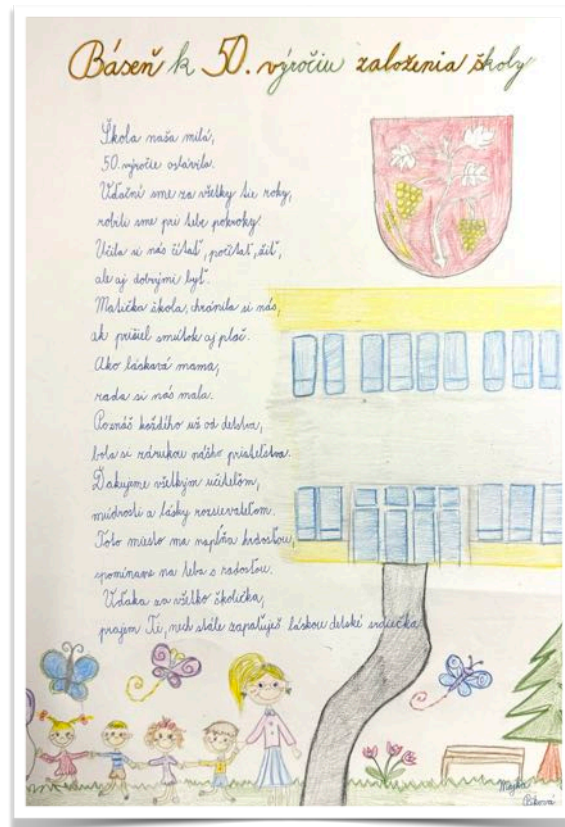 Báseň k 50. výročiu založenia školy
Škola naša milá,
50. výročie oslávila.
Vďační sme za všetky tie roky,
robili sme pri tebe pokroky.
Učila si nás čítať, počítať, žiť,
ale aj dobrými byť.
Matička škola, chránila si nás,
ak prišiel smútok aj plač.
Ako láskavá mama,
rada si nás mala.
Poznáš každého už od detstva,
bola si zárukou nášho priateľstva.
Ďakujeme všetkým učiteľom,
múdrosti a lásky rozsievateľom.
Toto miesto ma napĺňa hrdosťou,
spomíname na teba s radosťou.
Vďaka za všetko školička,
prajem Ti, nech stále zapaľuješ láskou detské srdiečka.